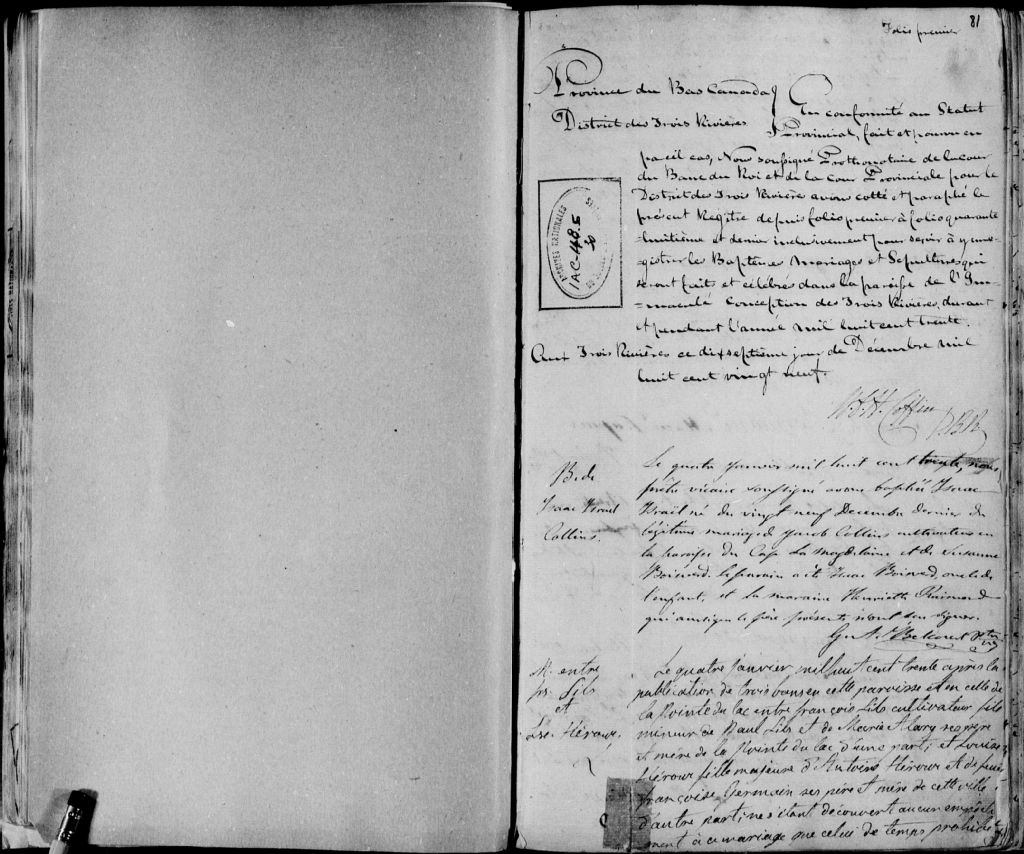 81
Folio premier
Province du Bas Canada
District des Trois Rivières
En conformité au Statut
Provincial, fait et pourvu en
pareil cas, Nous soussigné Prothonotaire de la cour
du Banc du Roi et de la cour Provinciale pour le
District des Trois Rivière avons cotté et paraphé le
présent Régître depuis folio premier à folio quarante
=huitième et dernier inclusivement pour servir à y enre-
gistrer les Baptêmes Mariages et Sépultures qui
seront faits et célébrés dans la paroisse de l'Im-
=maculé Conception des Trois Rivières, durant
et pendant l'année mil huit cent trente.
Aux Trois Rivières ce dixseptième jour de Décembre mil
huit cent vingt neuf.
ARCHIVES NATIONALES
1AC-48.5
30
W.H. Coffin
PBR
B. de
Isaac Israel
Collins.
Le quatre Janvier mil huit cent trente, nous
prêtre vicaire soussigné avons baptisé Isaac
Israël né du vingt neuf Decembre dernier du
légitime mariage de Jacob Collins cultivateur en
la paroisse du Cap La Magdelaine et de Susanne
Boisverd. Le parain a été Isaac Boisverd, oncle de
l'enfant, et la maraine Henriette
qui ainsi que le père présents n'ont su signer.
G. A. Belcourt Ptre
M. entre
frs. Lils
et
Lse. Héroux,
Le quatre Janvier mil huit cent trente après la
publication de trois bans en cette paroisse et en celle de
la Pointe du lac entre françois Lils cultivateur fils
mineur de Paul Lils et de Marie Alary ses père
et mère de la Pointe du lac d'une part; et Louise
Héroux fille majeure d'Antoine Héroux et de feue
françoise Germain ses père et mère de cette ville
d'autre part; ne s'étant découvert aucun empêche
ment à ce mariage que celui de temps prohibé